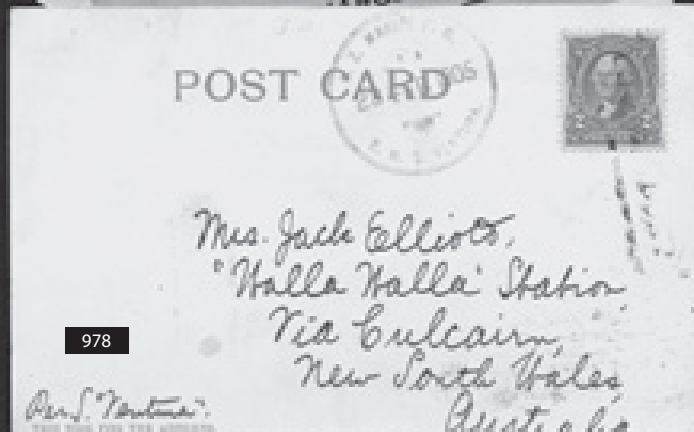 POST CARD
2
2
Mrs. Jack Elliott,
"Walla Walla" Station
Via Culcairn,
New South Wales
Australia
978
Per S. "Ventura".